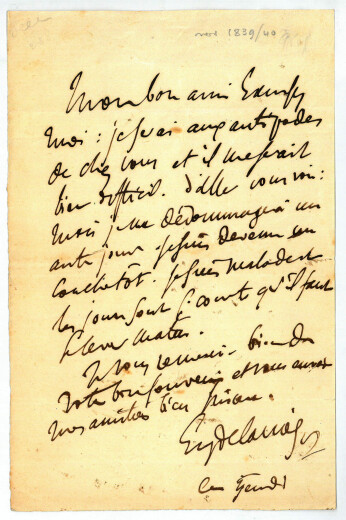 1839/40
Mon bon ami Excusez
moi : je serai aux antipodes
de chez vous et il me serait
bien difficil. d'aller vous voir :
mais je me dédommagerai un
autre jour. je suis devenu un
couchetôt. je suis malade et
les jours sont si courts qu'il faut
se lever matin.
Je vous remercie bien de
votre bon souvenir et vous envoie
mes amitiés bien sincères.
Eug Delacroix
ce Jeudi